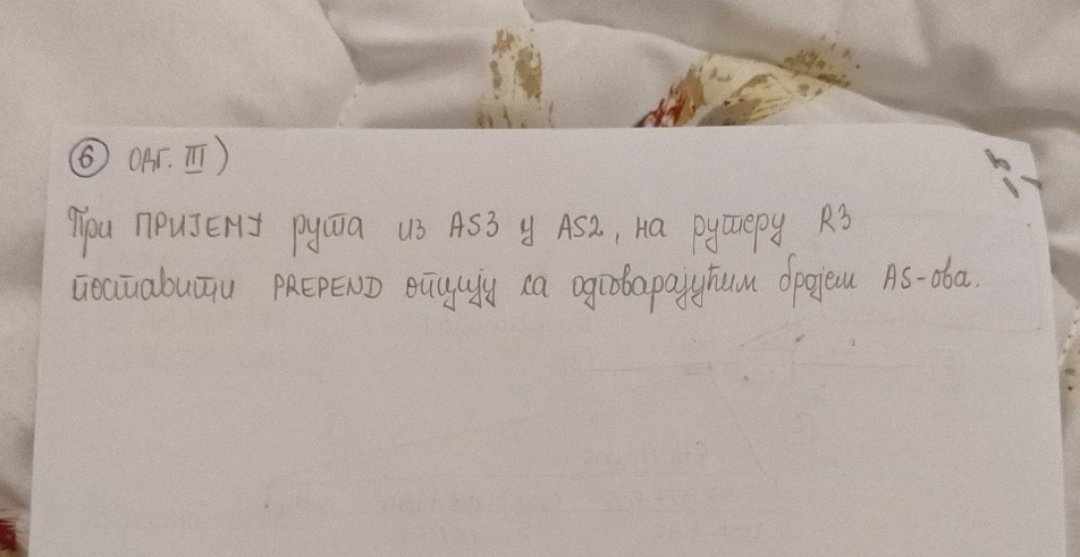 6 ОДГ. III)
При ПРИЈЕМУ рута из AS3 у AS2, на рутеру R3
поставити PREPEND опцију са одговарајућим бројем AS-ова.